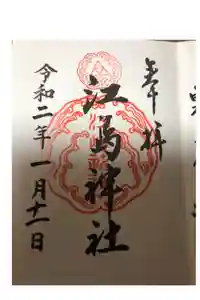 奉拝
江島神社
令和二年一月十二日